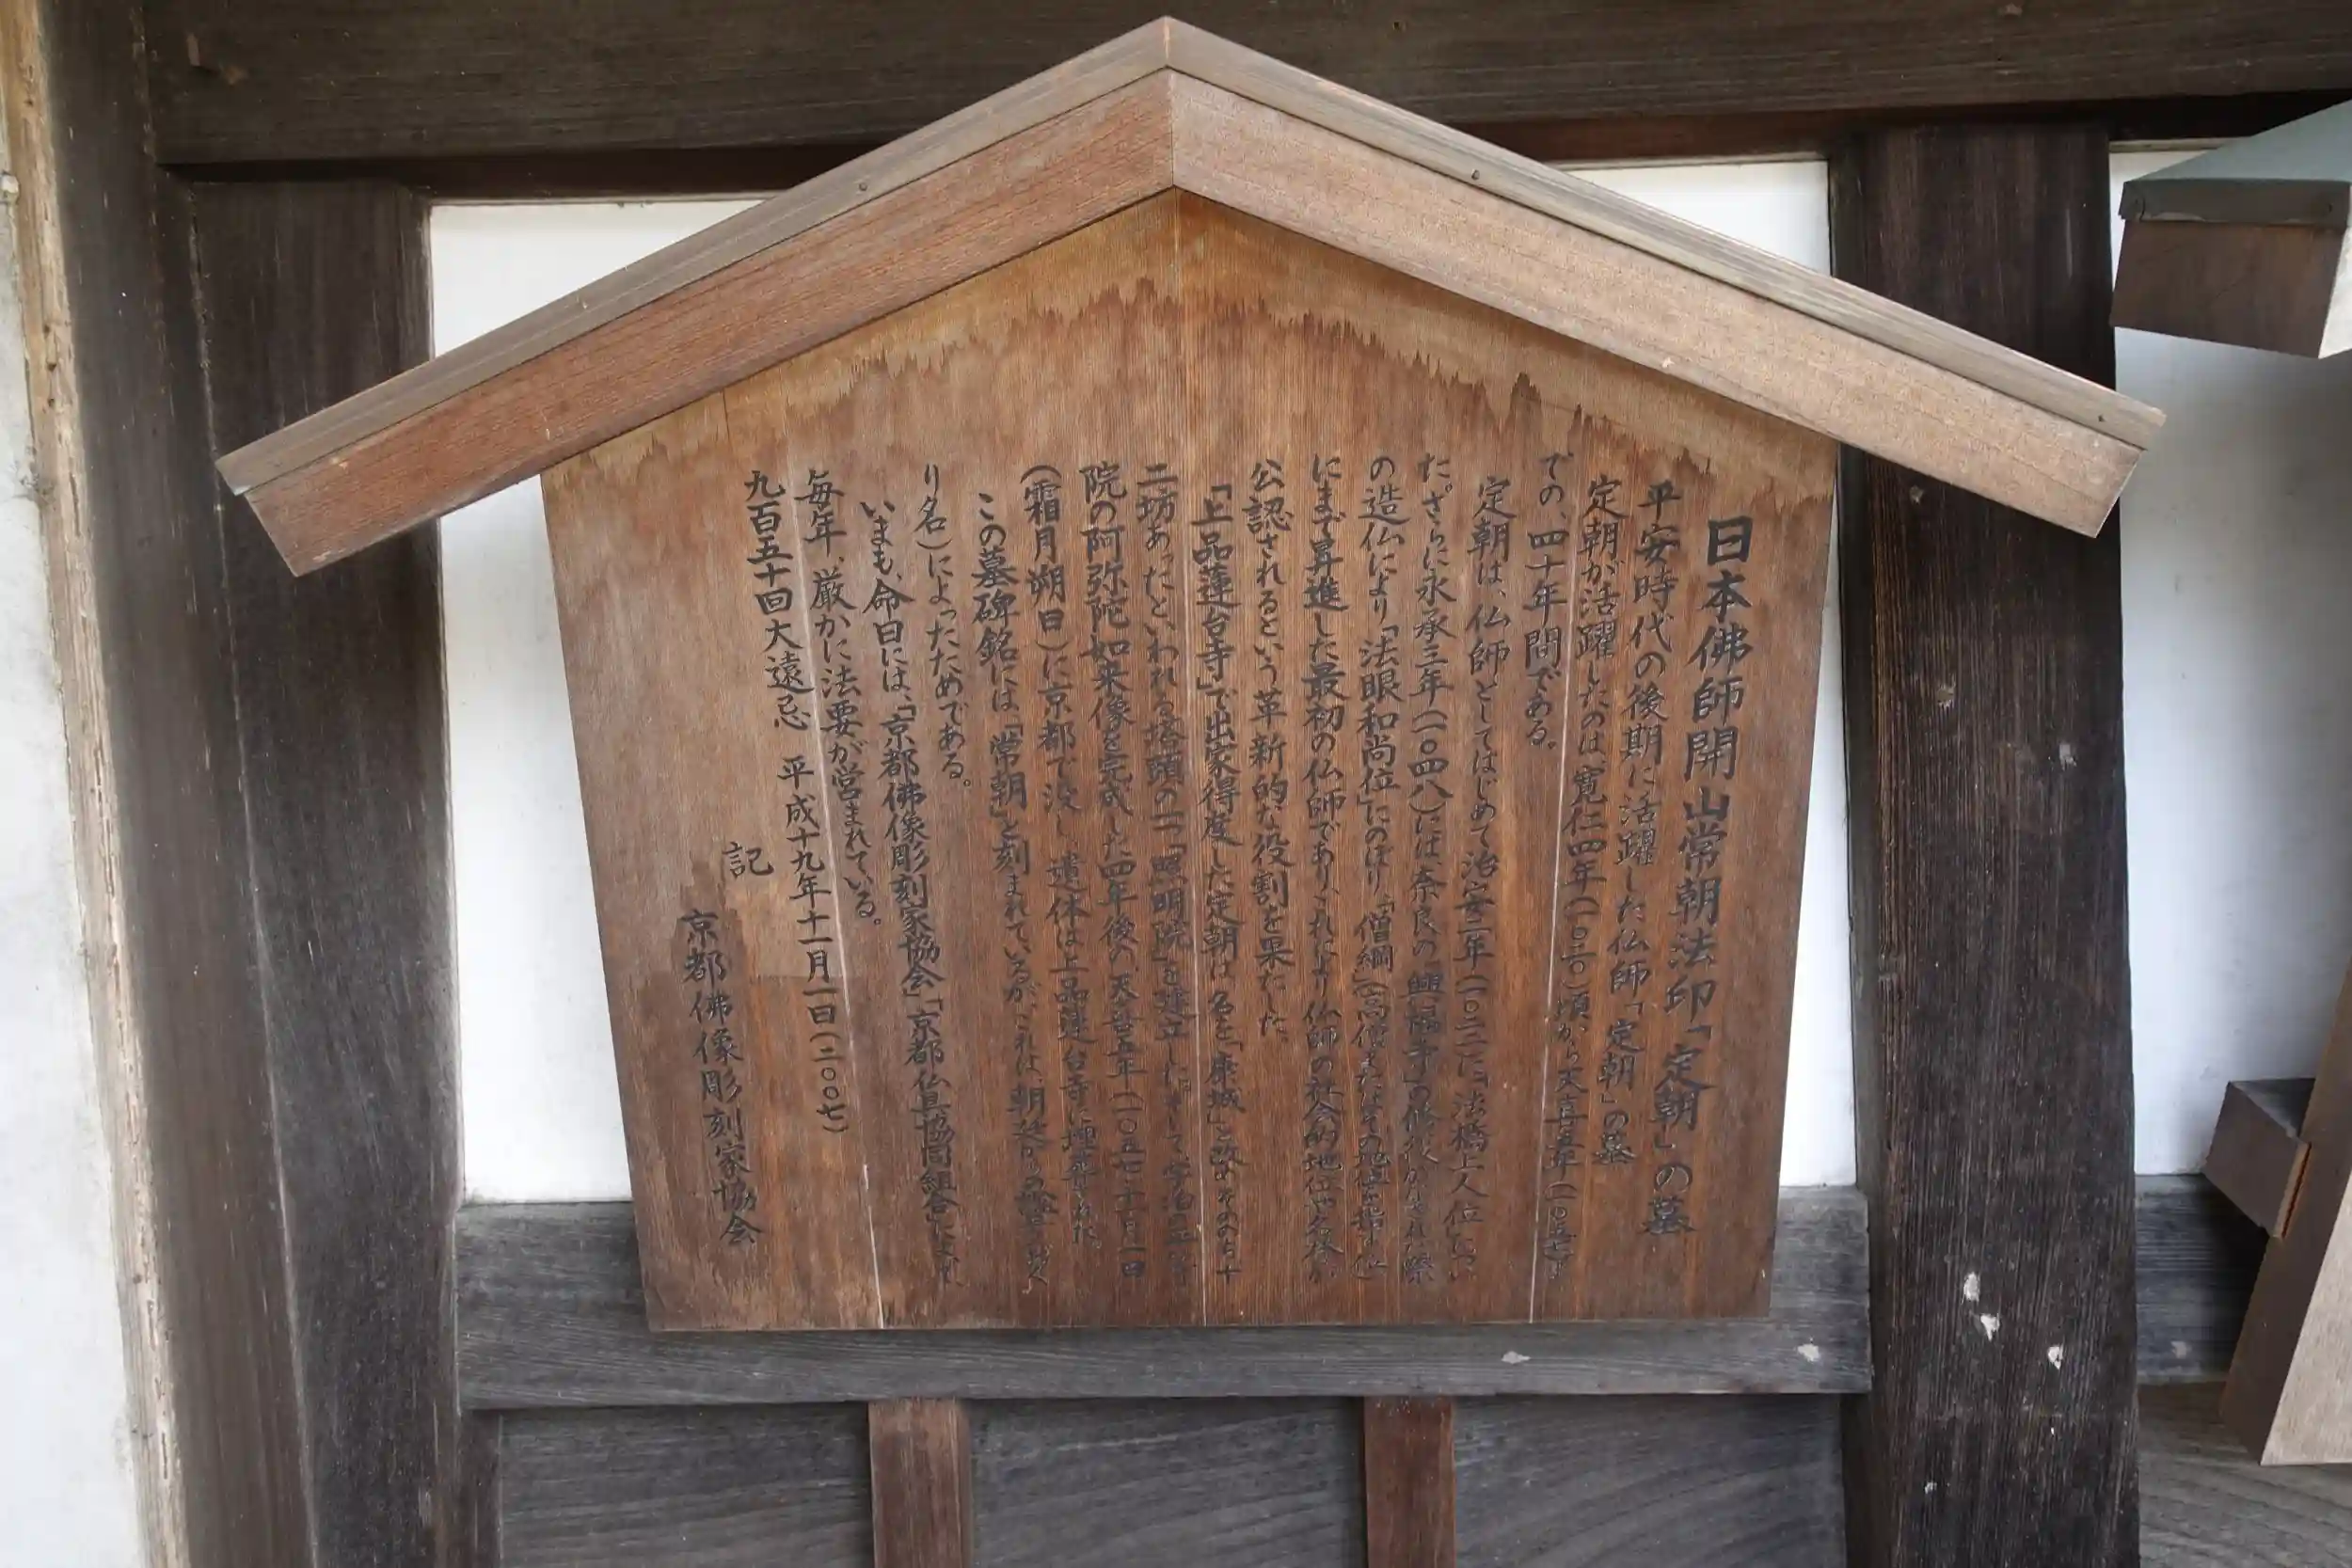 日本佛師開山常朝法印「定朝」の墓
平安時代の後期に活躍した仏師「定朝」の墓
定朝が活躍したのは、寛仁四年(一〇二〇)頃から天喜五年(一〇五七)ま
での、四十年間である。
定朝は、仏師としてはじめて治安二年(一〇二二)に「法橋上人位」につい
た。さらに永承三年(一〇四八)には奈良の「興福寺」の修復
の造仏により「法眼和尚位」にのぼり、「僧綱」(高僧またはその地位を指す位)
にまで昇進した最初の仏師であり、これにより仏師の社会的地位や名
公認されるという革新的な役割を果たした。
「上品蓮台寺」で出家得度した定朝は名を「康城」と改めその内十
二坊あったといわれる塔頭の一つ「照明院」を建立した。
院の阿弥陀如来像を完成した四年後の、天喜五年(一〇五七)十一月一日
(霜月朔日)に京都で没し遺体は上品蓮台寺に埋葬された。
この墓碑銘には、「常朝」と刻まれているが、これは、朝
り名)によったためである。
いまも、命日には、「京都佛像彫刻家協会」「京都仏具協同組合」
毎年、厳かに法要が営まれている。
九百五十回大遠忌 平成十九年十一月一日(二〇〇七)
記
京都佛像彫刻家協会